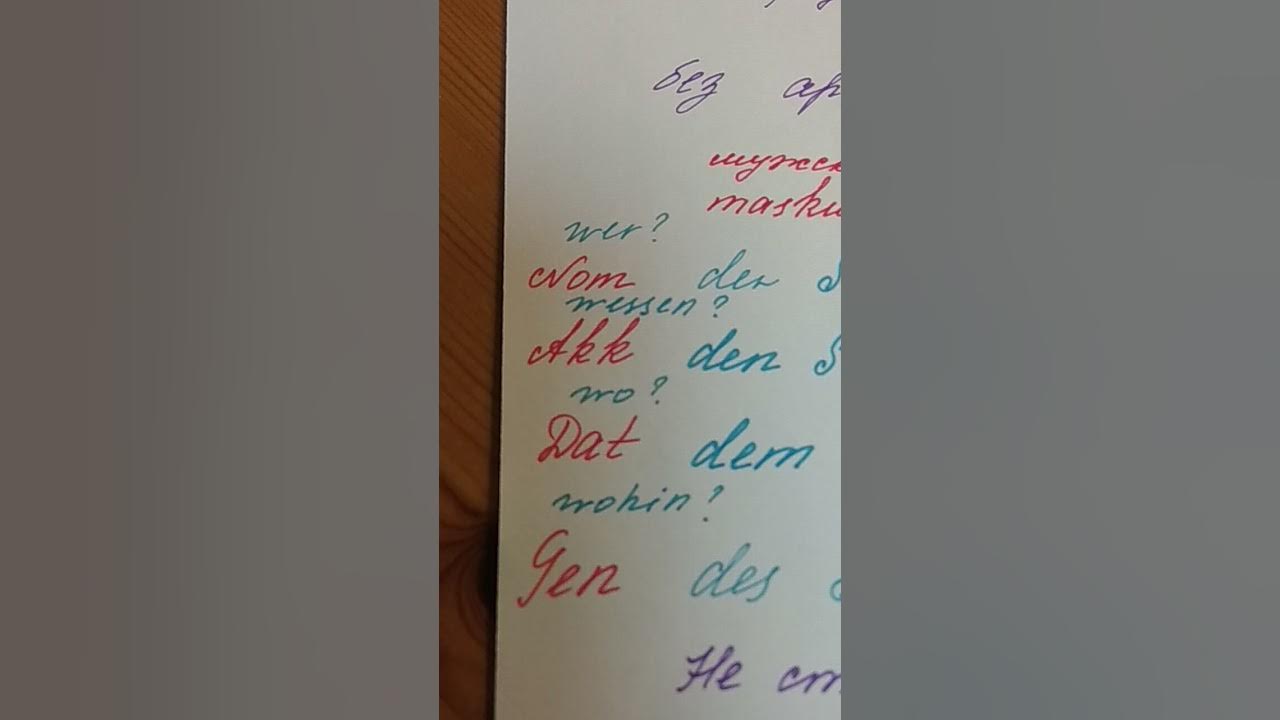 без ар
мужск
masku
wer?
Nom der S
wessen?
Akk den S
wo?
Dat dem
wohin?
Gen des
Не ст